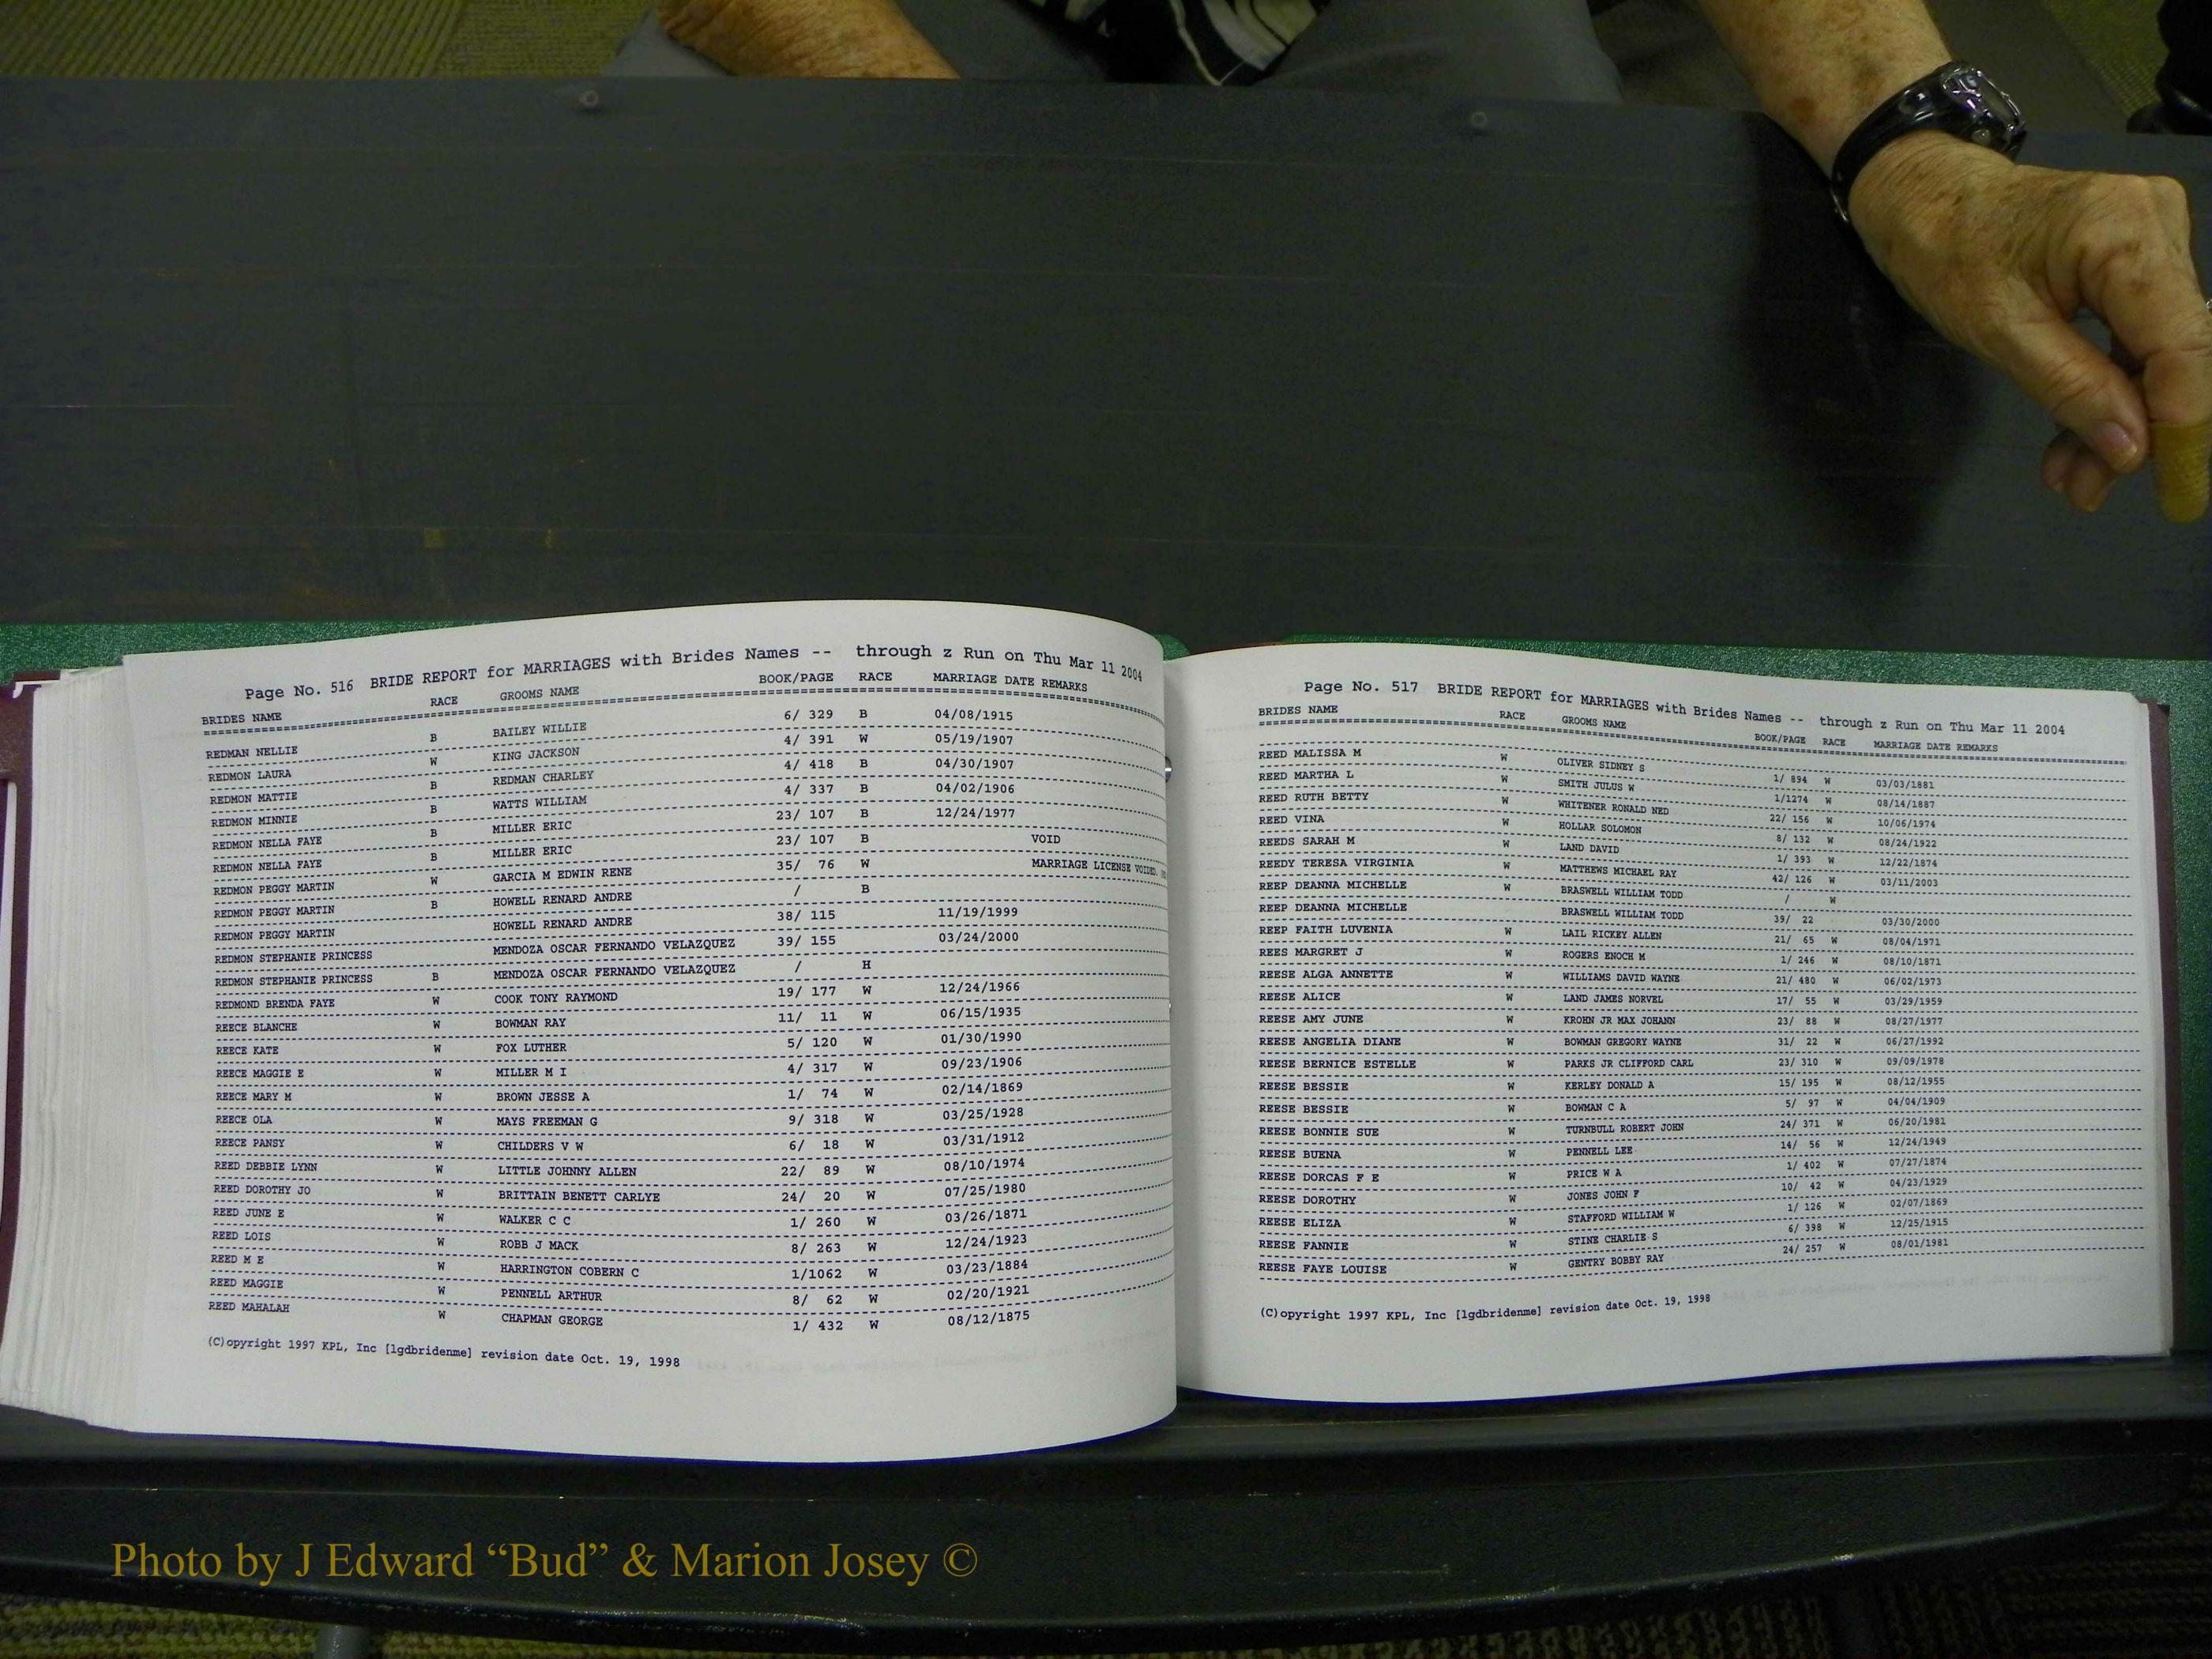 Page No. 516 BRIDE REPORT for MARRIAGES with Brides Names -- through z Run on Thu Mar 11 2004
BRIDES NAME RACE GROOMS NAME BOOK/PAGE RACE MARRIAGE DATE REMARKS
REDMAN NELLIE B BAILEY WILLIE 6/ 329 B 04/08/1915
REDMON LAURA W KING JACKSON 4/ 391 W 05/19/1907
REDMON MATTIE B REDMAN CHARLEY 4/ 418 B 04/30/1907
REDMON MINNIE B WATTS WILLIAM 4/ 337 B 04/02/1906
REDMON NELLA FAYE B MILLER ERIC 23/ 107 B 12/24/1977
REDMON NELLA FAYE B MILLER ERIC 23/ 107 B VOID
REDMON PEGGY MARTIN W GARCIA M EDWIN RENE 35/ 76 W MARRIAGE LICENSE VOIDED.
REDMON PEGGY MARTIN B HOWELL RENARD ANDRE / B
REDMON PEGGY MARTIN HOWELL RENARD ANDRE 38/ 115 11/19/1999
REDMON STEPHANIE PRINCESS MENDOZA OSCAR FERNANDO VELAZQUEZ 39/ 155 03/24/2000
REDMON STEPHANIE PRINCESS B MENDOZA OSCAR FERNANDO VELAZQUEZ / H
REDMOND BRENDA FAYE W COOK TONY RAYMOND 19/ 177 W 12/24/1966
REECE BLANCHE W BOWMAN RAY 11/ 11 W 06/15/1935
REECE KATE W FOX LUTHER 5/ 120 W 01/30/1990
REECE MAGGIE E W MILLER M I 4/ 317 W 09/23/1906
REECE MARY M W BROWN JESSE A 1/ 74 W 02/14/1869
REECE OLA W MAYS FREEMAN G 9/ 318 W 03/25/1928
REECE PANSY W CHILDERS V W 6/ 18 W 03/31/1912
REED DEBBIE LYNN W LITTLE JOHNNY ALLEN 22/ 89 W 08/10/1974
REED DOROTHY JO W BRITTAIN BENETT CARLYE 24/ 20 W 07/25/1980
REED JUNE E W WALKER C C 1/ 260 W 03/26/1871
REED LOIS W ROBB J MACK 8/ 263 W 12/24/1923
REED M E W HARRINGTON COBERN C 1/1062 W 03/23/1884
REED MAGGIE W PENNELL ARTHUR 8/ 62 W 02/20/1921
REED MAHALAH W CHAPMAN GEORGE 1/ 432 W 08/12/1875
(C)opyright 1997 KPL, Inc [lgdbridenme] revision date Oct. 19, 1998
Page No. 517 BRIDE REPORT for MARRIAGES with Brides Names -- through z Run on Thu Mar 11 2004
BRIDES NAME RACE GROOMS NAME BOOK/PAGE RACE MARRIAGE DATE REMARKS
REED MALISSA M W OLIVER SIDNEY S 1/ 894 W 03/03/1881
REED MARTHA L W SMITH JULUS W 1/1274 W 08/14/1887
REED RUTH BETTY W WHITENER RONALD NED 22/ 156 W 10/06/1974
REED VINA W HOLLAR SOLOMON 8/ 132 W 08/24/1922
REEDS SARAH M W LAND DAVID 1/ 393 W 12/22/1874
REEDY TERESA VIRGINIA W MATTHEWS MICHAEL RAY 42/ 126 W 03/11/2003
REEP DEANNA MICHELLE W BRASWELL WILLIAM TODD / W
REEP DEANNA MICHELLE BRASWELL WILLIAM TODD 39/ 22 03/30/2000
REEP FAITH LUVENIA W LAIL RICKEY ALLEN 21/ 65 W 08/04/1971
REES MARGRET J W ROGERS ENOCH M 1/ 246 W 08/10/1871
REESE ALGA ANNETTE W WILLIAMS DAVID WAYNE 21/ 480 W 06/02/1973
REESE ALICE W LAND JAMES NORVEL 17/ 55 W 03/29/1959
REESE AMY JUNE W KROHN JR MAX JOHANN 23/ 88 W 08/27/1977
REESE ANGELIA DIANE W BOWMAN GREGORY WAYNE 31/ 22 W 06/27/1992
REESE BERNICE ESTELLE W PARKS JR CLIFFORD CARL 23/ 310 W 09/09/1978
REESE BESSIE W KERLEY DONALD A 15/ 195 W 08/12/1955
REESE BESSIE W BOWMAN C A 5/ 97 W 04/04/1909
REESE BONNIE SUE W TURNBULL ROBERT JOHN 24/ 371 W 06/20/1981
REESE BUENA W PENNELL LEE 14/ 56 W 12/24/1949
REESE DORCAS F E W PRICE W A 1/ 402 W 07/27/1874
REESE DOROTHY W JONES JOHN F 10/ 42 W 04/23/1929
REESE ELIZA W STAFFORD WILLIAM W 1/ 126 W 02/07/1869
REESE FANNIE W STINE CHARLIE S 6/ 398 W 12/25/1915
REESE FAYE LOUISE W GENTRY BOBBY RAY 24/ 257 W 08/01/1981
(C)opyright 1997 KPL, Inc [lgdbridenme] revision date Oct. 19, 1998
Photo by J Edward “Bud” & Marion Josey ©